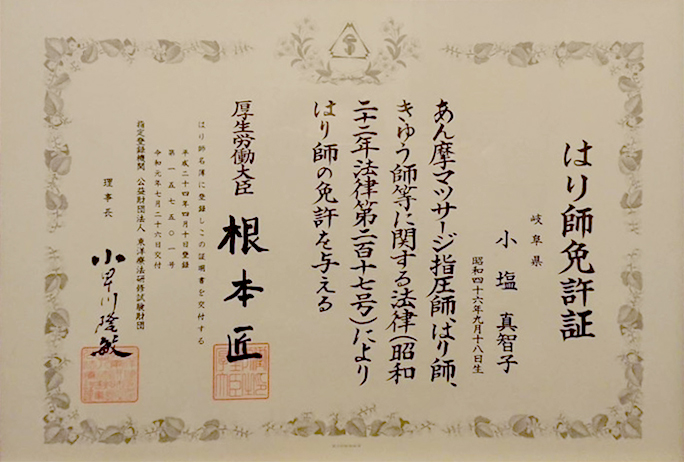 はり師免許証
岐阜県
小塩 真智子
昭和四十六年九月十八日生
あん摩マツサージ指圧師、はり師、
きゆう師等に関する法律(昭和
二十二年法律第二百十七号)により
はり師の免許を与える
厚生労働大臣 根本匠
はり師名簿に登録しこの証明書を交付する
平成二十四年四月十日登録
第一五七五〇一号
令和元年七月二十六日交付
指定登録機関 公益財団法人 東洋療法研修試験財団
理事長 小早川隆敏